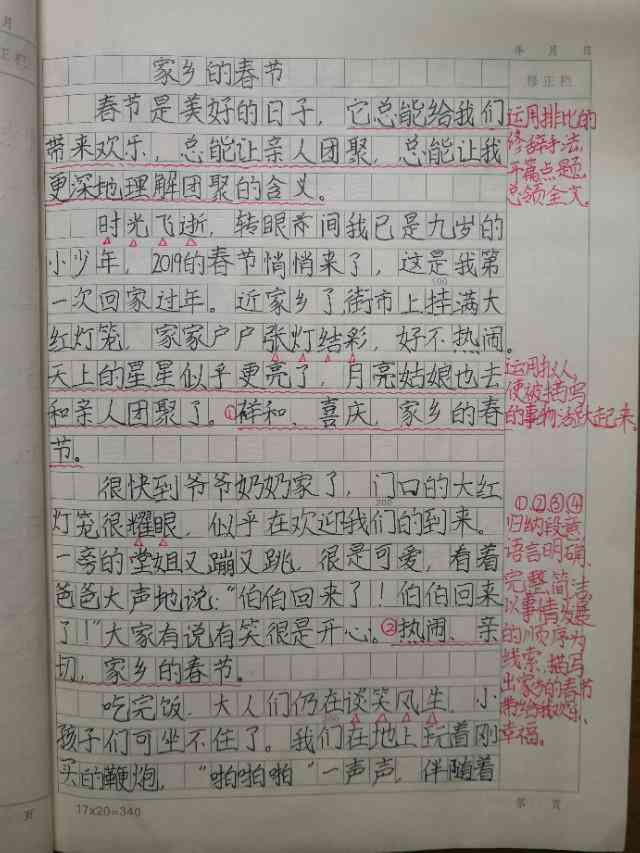 年 月 日
月
修正栏
家乡的春节
春节是美好的日子，它总能给我们
带来欢乐，总能让亲人团聚，总能让我
更深地理解团聚的含义。
运用排比的
修辞手法，
开篇点题，
总领全文。
时光飞逝，转眼间我已是九岁的
小少年，2019的春节悄悄来了，这是我第
100
一次回家过年。近家乡了街市上挂满大
红灯笼，家家户户张灯结彩，好不热闹。
天上的星星似乎更亮了，月亮姑娘也去
和亲人团聚了。①祥和、喜庆，家乡的春
节。
运用拟人，
使被描写
的事物活跃起来。
很快到爷爷奶奶家了，门口的大红
200
灯笼很耀眼，似乎在欢迎我们的到来。
一旁的堂姐又蹦又跳，很是可爱，看着
爸爸大声地说：“伯伯回来了！伯伯回来
了！”大家有说有笑很是开心。②热闹、亲
切，家乡的春节。
①②③④
归纳段意
语言明确、
完整、简洁，
以事情发展
的顺序为
线索，描写
出家乡的春节
带给我欢乐、
幸福。
吃完饭，大人们仍在谈笑风生，小
孩子们可坐不住了。我们在地上玩着刚
买的鞭炮，“啪啪啪”一声声，伴随着
17×20=340
第 页
页